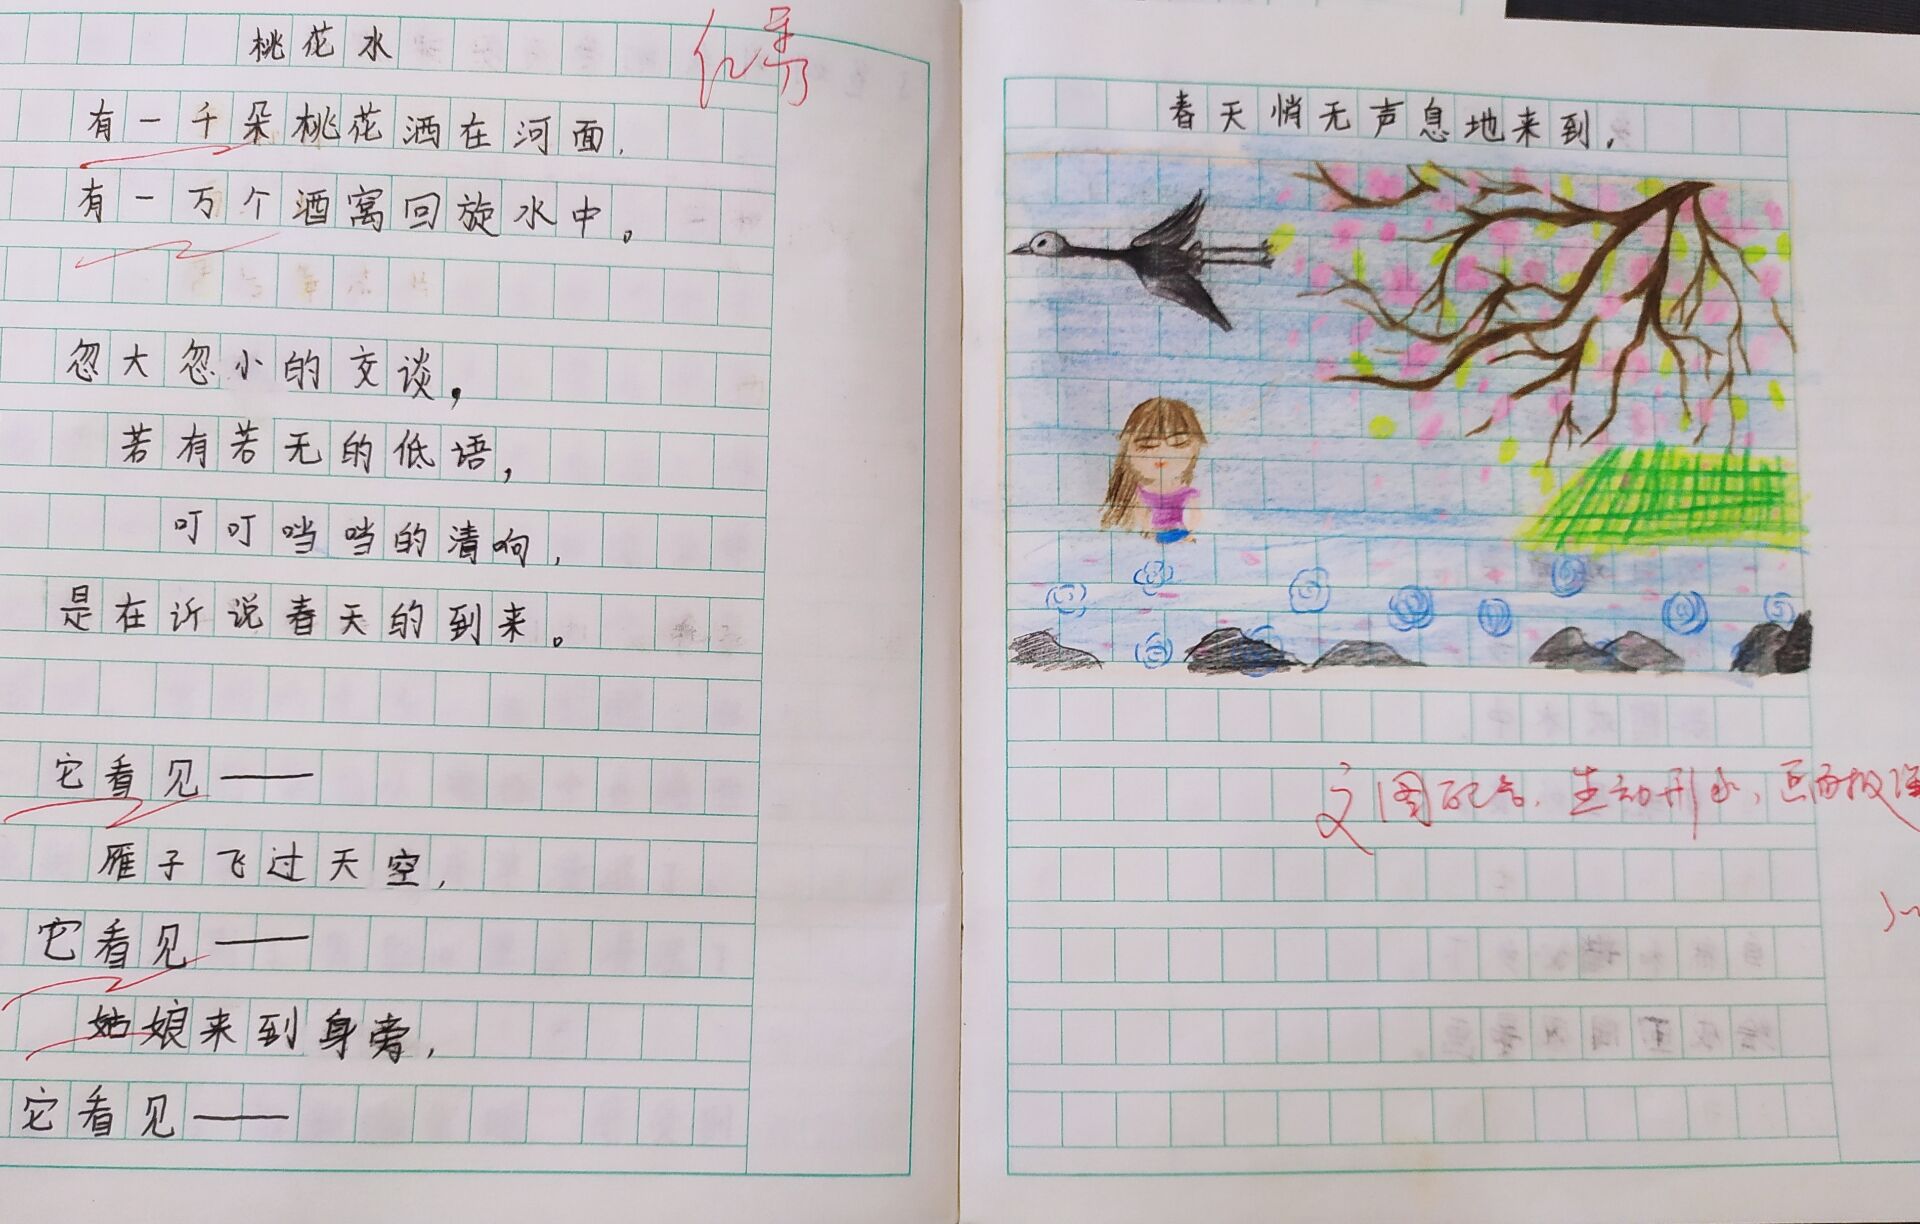 桃花水
优秀
有一千朵桃花洒在河面,
有一万个酒窝回旋水中。
忽大忽小的交谈,
若有若无的低语,
叮叮当当的清响,
是在诉说春天的到来。
它看见——
雁子飞过天空,
它看见——
姑娘来到身旁,
它看见——
春天悄无声息地来到,
文图配合,生动形